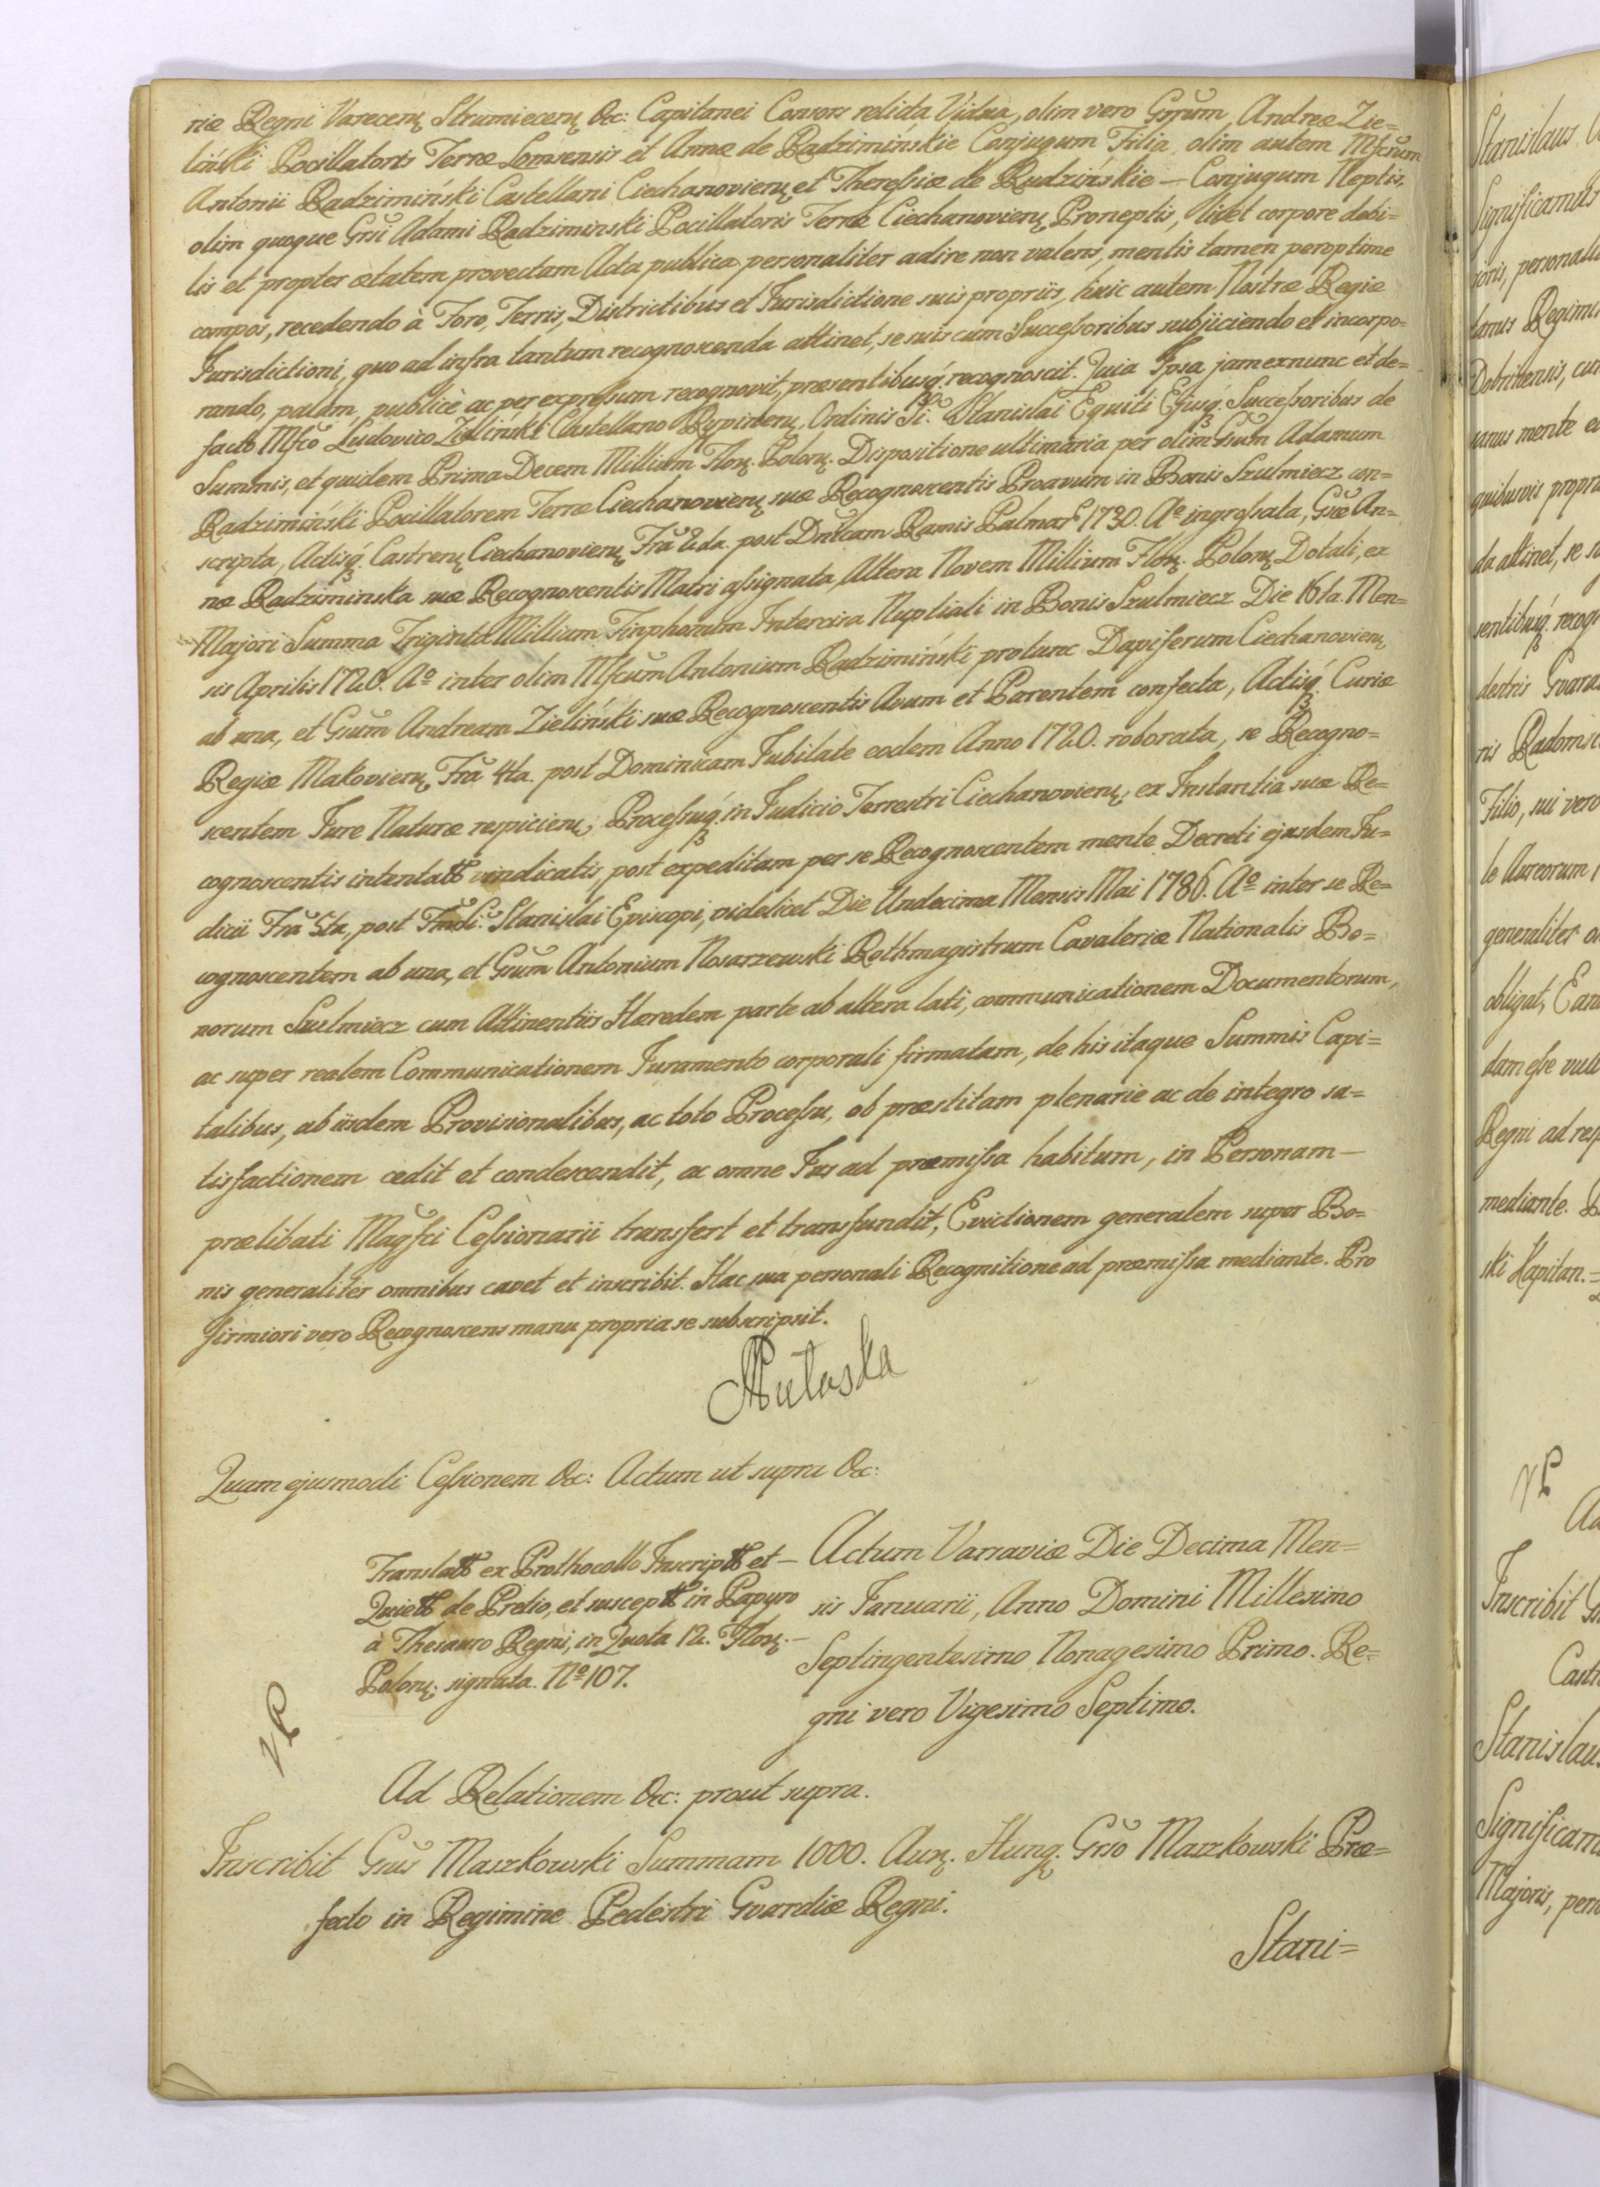 riæ Regni Varecen̄ Strumiecen̄ &c: Capitanei Consors relicta Vidua, olim vero Grrum, Andreæ Zie=
liński Pocillatoris Terræ Lomsensis et Annæ de Radziminskie Conjugum Filia, olim autem Mfcrum
Antonii Radzimiński Castellani Ciechanovien̄ et Theressiæ de Rudzińskie — Conjugum Neptis,
olim quoque Grsi Adami Radziminski Pocillatoris Terræ Ciechanovien̄ Proneptis, licet corpore debi=
lis et propter ætatem provectam Acta publica personaliter adire non valens, mentis tamen peroptime
compos, recedendo à Foro, Terris, Districtibus et Jurisdictione suis propriis, huic autem Nostræ Regiæ
Jurisdictioni, quo ad infra tantum recognoscenda attinet, se suis cum Successoribus subjiciendo et incorpo=
rando, palam, publicè ac per expressum recognovit, præsentibusq́ recognoscit. Quia Ipsa jam exnunc et de=
facto Mfco Ludovico Zielinski Castellano Rypinen̄, Ordinis Sti. Stanislai Equiti Ejusq́ Successoribus de
Summis, et quidem Prima Decem Millium Flon̄. Polon̄. Dispositione ultimaria per olim Grsum Adamum
Radzimiński Pocillatorem Terræ Ciechanovien̄ suæ Recognoscentis Proavum in Bonis Szulmierz con=
scripta, Actisq́ Castren̄ Ciechanovien̄ Fra 2da. post Dnicam Ramis Palmar̄ 1730. Aº ingrossata, Gsæ An=
næ Radziminska suæ Recognoscentis Matri assignata, Altera Novem Millium Flon̄. Polon̄ Dotali, ex
Majori Summa Triginta Millium Tinphorum Intercisa Nuptiali in Bonis Szulmierz Die 16ta. Men=
sis Aprilis 1720. Aº inter olim Mfcum Antonium Radzimiński protunc Dapiferum Ciechanovien̄
ab una, et Gsum Andream Zieliński suæ Recognoscentis Avum et Parentem confecta, Actisq́ Curiæ
Regiæ Makovien̄ Fra 4ta. post Dominicam Jubilate eodem Anno 1720. roborata, se Recogno=
scentem Jure Naturæ respicien̄, Processuq́ in Judicio Terrestri Ciechanovien̄, ex Instantia suæ Re=
cognoscentis intentatt vindicatis, post expeditam per se Recognoscentem mente Decreti ejusdem Ju=
dicii Fra 5ta, post Sti. Stanislai Episcopi, videlicet Die Undecima Mensis Mai 1786. Aº inter se Re=
cognoscentem ab una, et Gsum Antonium Nosarzewski Rothmagistrum Cavaleriæ Nationalis Bo=
norum Szulmierz cum Attinentiis Hæredem parte ab altera lati, communicationem Documentorum,
ac super realem Communicationem Juramento corporali firmatam, de his itaque Summis Capi=
talibus, ab iisdem Provisionalibus, ac toto Processu, ob præstitam plenarie ac de integro sa=
tisfactionem cedit et condescendit, ac omne Jus ad præmissa habitum, in Personam —
prælibati Magfci Cessionarii transfert et transfundit, Evictionem generalem super Bo=
nis generaliter omnibus cavet et inscribit. Hac sua personali Recognitione ad præmissa mediante. Pro
firmiori vero Recognoscens manu propria se subscripsit.
Quam ejusmodi Cessionem &c: Actum ut supra &c:
Translatt ex Prothocollo Inscriptt et —
Quiett de Predio, et susceptt in Papyro
à Thesauro Regni, in Quota 12. Flon̄. —
Polon̄. signata. Nº 107.
Actum Varsaviæ Die Decima Men=
sis Januarii, Anno Domini Millesimo
Septingentesimo Nonagesimo Primo. Re=
gni vero Vigesimo Septimo.
Ad Relationem &c: prout supra.
Inscribit Grsus Maszkowski Summam 1000. Aur̄. Hung̃. Grso Maszkowski Præ=
fecto in Regimine Pedestri Gvardiæ Regni.
Stani=